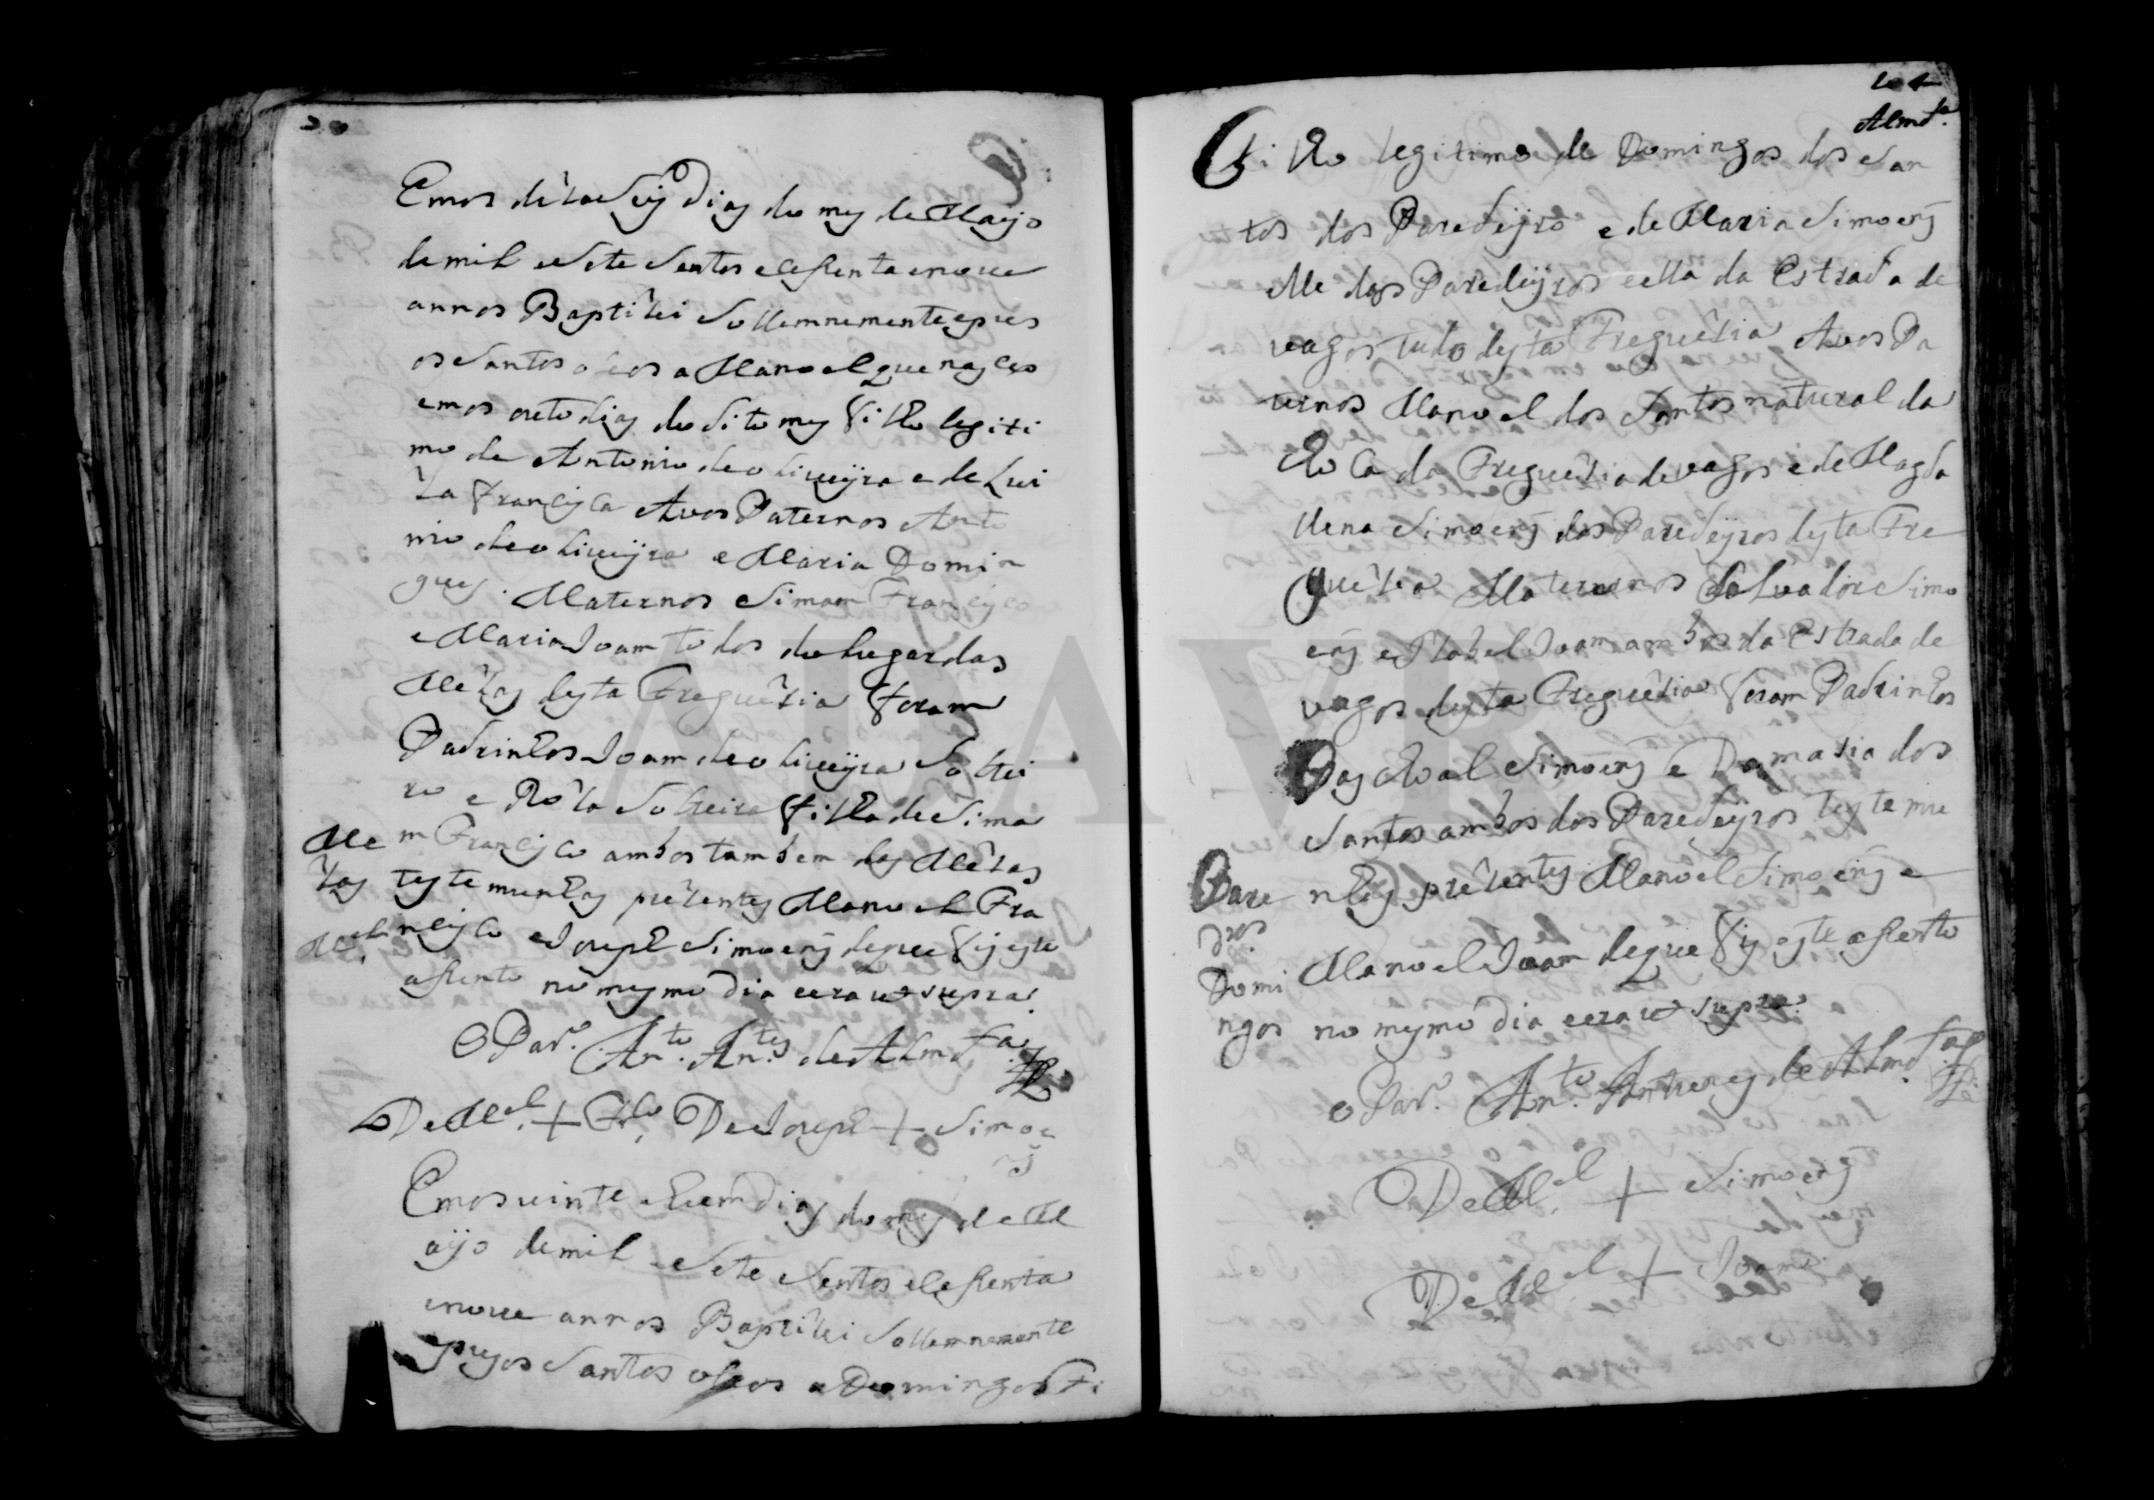 Emos dezaseis dias do mes de Mayo
de mil e sete sentos e sesenta e nove
annos Baptizei Sollemnemente e pus
os Santos oleos a Manoel que nasceo
emos outo dias do dito mes filho legiti
mo de Antonio de oliveijra e de Lui
za Francisca Avos Paternos Anto
nio de oliveijra e Maria Domin
gues. Maternos Simam Francisco
e Maria Joam todos do lugar das
Mezas desta Freguezia foram
Padrinhos Joam de oliveijra soltei
ro e Roza Solteira filha de Sima
m Francisco ambos tambem das Mezas
testemunhas prezentes Manoel Fra
ncisco e Joseph Simoens de que fis este
asento no mesmo dia e era ut supra.
Me
zas
M.el
O Par.o An.to An.tes de Almd.a
De M.el + Fr.co De Joseph + Simoe
s
Emos vinte e hum dias do mes de M
ayo de mil e sete sentos e sesenta
e nove annos Baptizei sollemnemente
e pus os Santos oleos a Domingos Fi
Almd.a
Filho legitimo de Domingos dos San
tos dos Paredeijros e de Maria Simoens
elle dos Paredeijros e ella da Estrada de
vagos tudo desta Freguezia Avos Pa
ternos Manoel dos Santos natural da
da Freguezia de vagos e de Magda
llena Simoens dos Paredeijros desta Fre
guezia Maternos Salvador Simo
ens e Izabel Joam ambos da Estrada de
vagos desta Freguezia foram Padrinhos
Paschoal Simoens e Damasia dos
Santos ambos dos Paredeijros testemu
nhas prezentes Manoel Simoens e
Manoel Joam de que fis este asento
no mesmo dia e era ut supra.
Pare
dros
Domi
ngos
o Par.o An.to Antunes de Almd.a
De M.el + Simoens
De M.el + Joam